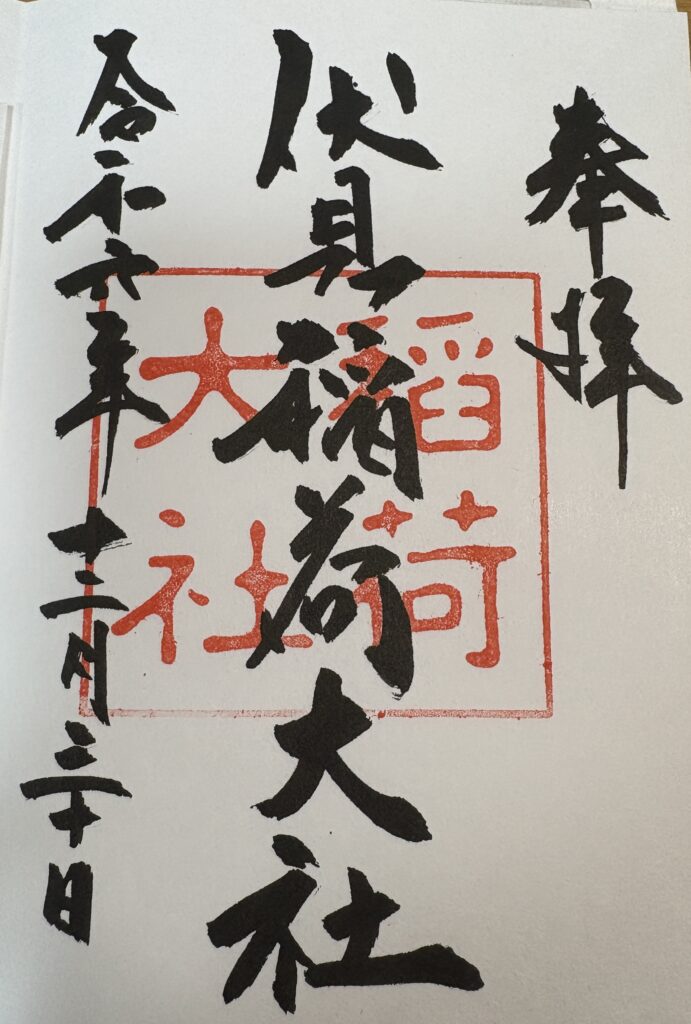 奉拝
伏見稲荷大社
稲荷
大社
令和六年十二月三十日